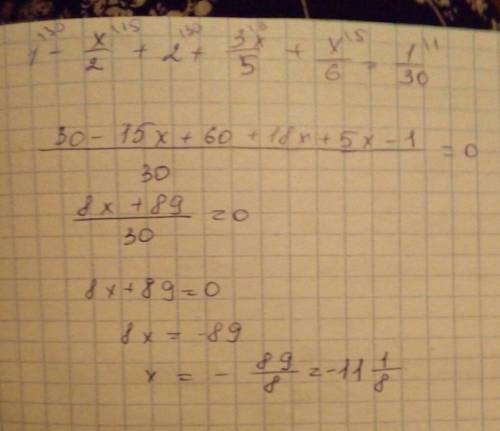 1^{\30} - \frac{x}{2}^{\15} + 2^{\30} + \frac{3x}{5}^{\6} + \frac{x}{6}^{\5} = \frac{1}{30}^{\1}
\frac{30 - 15x + 60 + 18x + 5x - 1}{30} = 0
\frac{8x + 89}{30} = 0
8x + 89 = 0
8x = -89
x = - \frac{89}{8} = -11 \frac{1}{8}